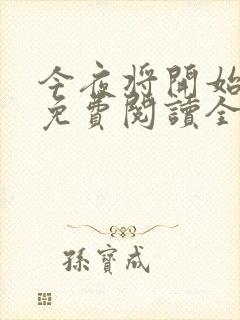 今夜将開始
免費閱讀全
孫寶成